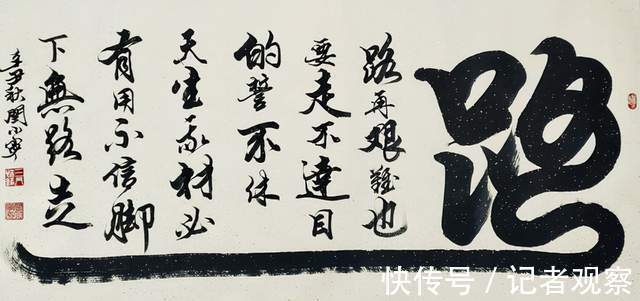 路
路再艰難也
要走不達目
的誓不休
天生我材必
有用不信脚
下無路走
辛丑秋
快传号 / 记者观察